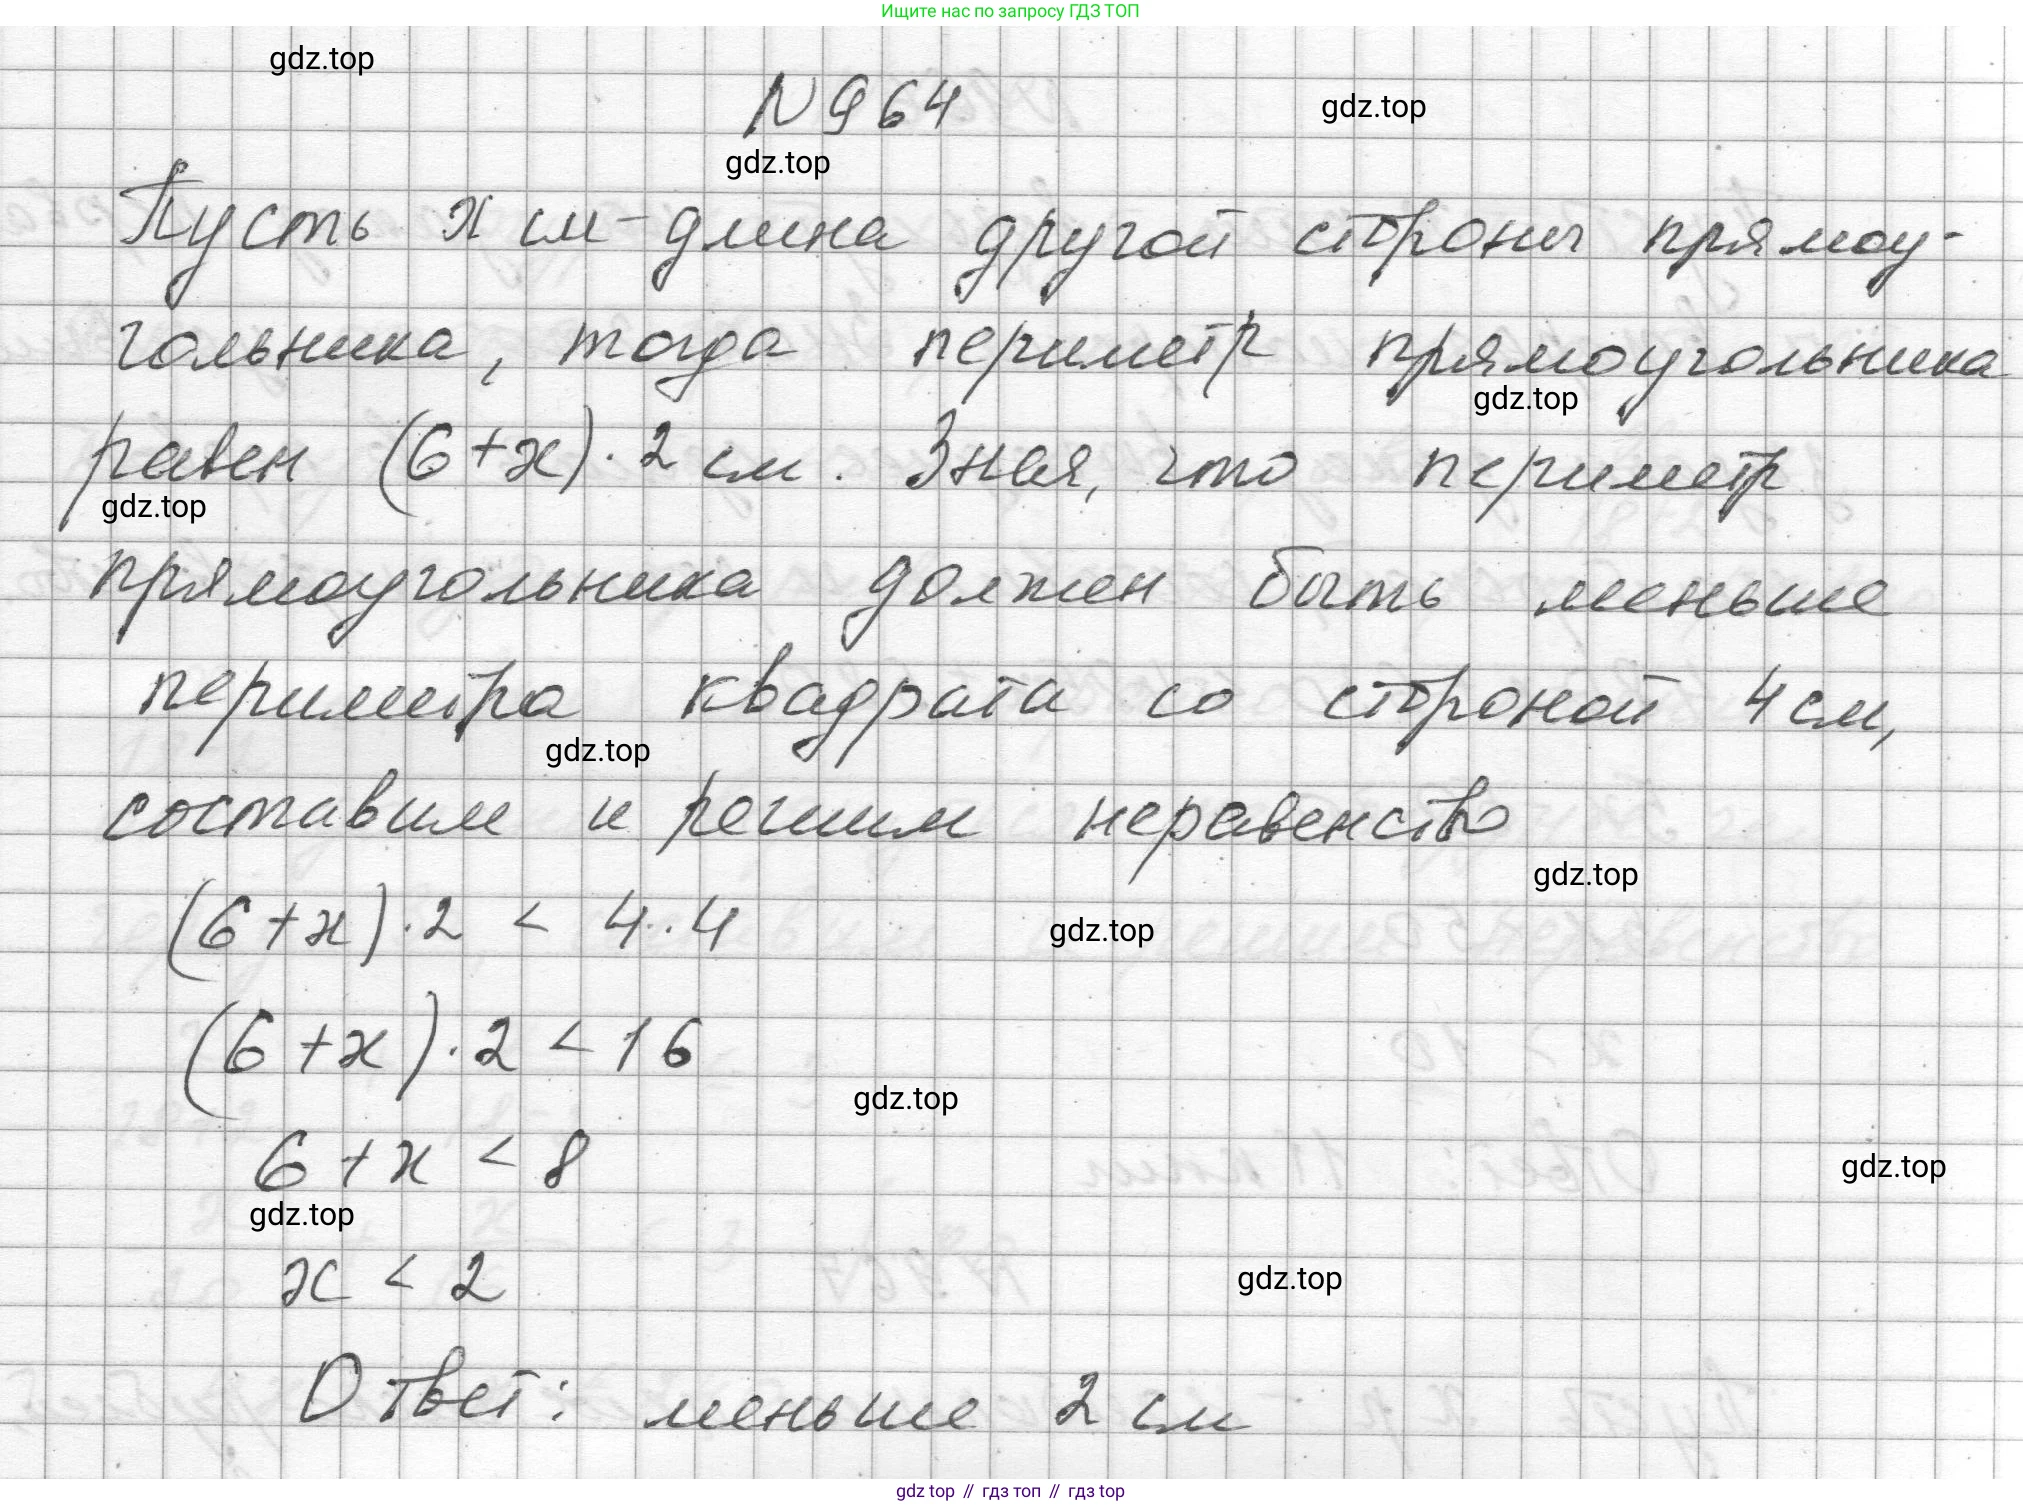 Ищите нас по запросу ГДЗ ТОП
gdz.top
N 964
gdz.top
gdz.top
Пусть x см - длина другой стороны прямоу-
гольника, тогда периметр прямоугольника
gdz.top
равен (6+x)·2 см. Зная, что периметр
gdz.top
прямоугольника должен быть меньше
периметра квадрата со стороной 4 см,
gdz.top
составим и решим неравенство
gdz.top
(6+x)·2 < 4·4
gdz.top
(6+x)·2 < 16
gdz.top
6+x < 8
gdz.top
gdz.top
x < 2
gdz.top
Ответ: меньше 2 см
gdz top // гдз топ // гдз top